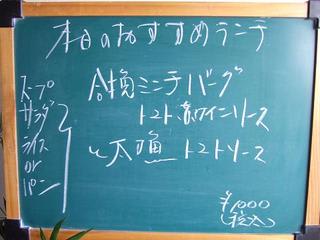 本日のおすすめランチ
合挽ミンチバーグ
トマト赤ワインソース
と太刀魚 トマトソース
スープ
サラダ
ライス
or
パン
¥1,000
(税込)